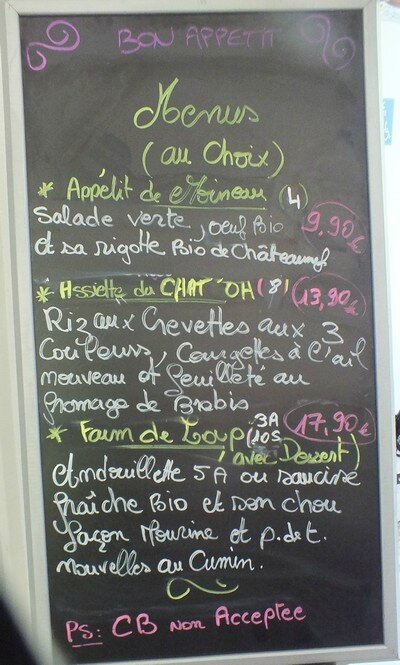 BON APPETIT
Menus
(au choix)
* Appétit de Moineau (4)
Salade verte, oeuf Bio 9,90€
et sa rigotte Bio de Châteauneuf
* Assiette du CHAT'OH (8) 13,90€
Riz aux Crevettes aux 3
Couleurs, Courgettes à l'ail
nouveau et feuilleté au
fromage de Brebis
* Faim de Loup 17,90€
(avec Dessert)
Andouillette 5A ou saucisse
fraîche Bio et son chou
façon Mourine et p.de t.
nouvelles au Cumin.
PS: CB non Acceptee